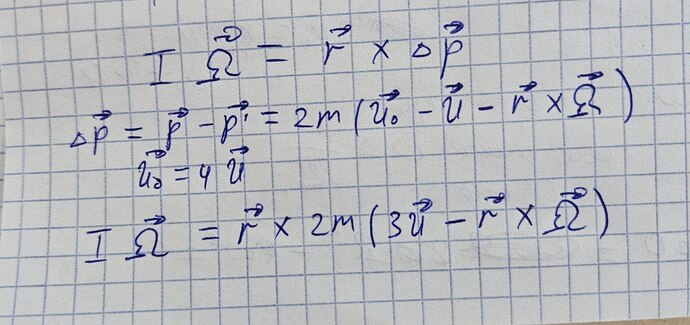 I Ω⃗ = r⃗ × Δp⃗
Δp⃗ = p⃗ - p⃗' = 2m(u⃗₀ - u⃗ - r⃗ × Ω⃗)
u⃗₀ = 4 u⃗
I Ω⃗ = r⃗ × 2m(3u⃗ - r⃗ × Ω⃗)